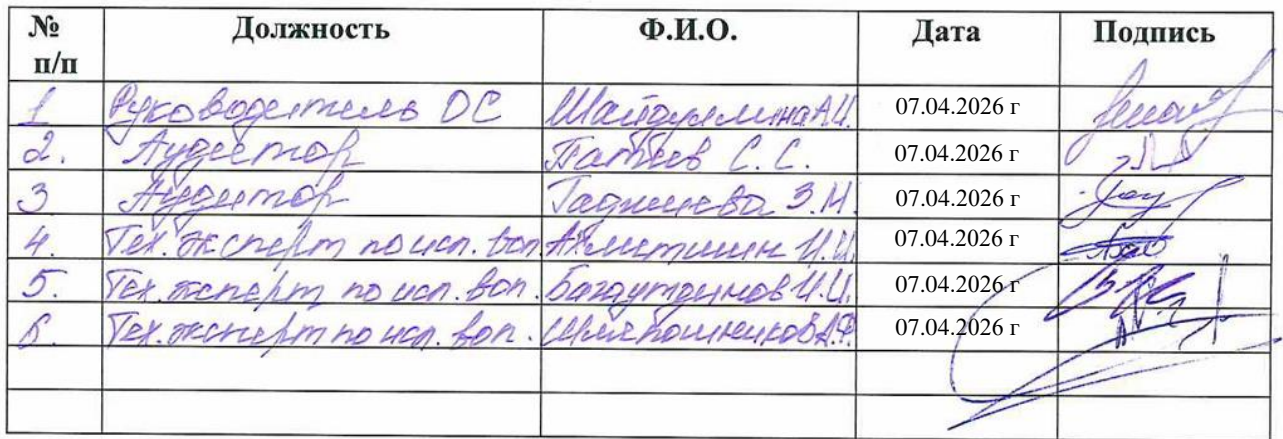 № п/п Должность Ф.И.О. Дата Подпись
1 Руководитель ОС Шайдуллина А.И. 07.04.2026 г
2. Аудитор С. С. 07.04.2026 г
3 Аудитор Гаджиева З.М. 07.04.2026 г
4. Тех. эксперт по исп. воп. Ахметшин И.И. 07.04.2026 г
5. Тех. эксперт по исп. воп. Багаутдинов И.И. 07.04.2026 г
6. Тех. эксперт по исп. воп. Шляпошников А.Ф. 07.04.2026 г